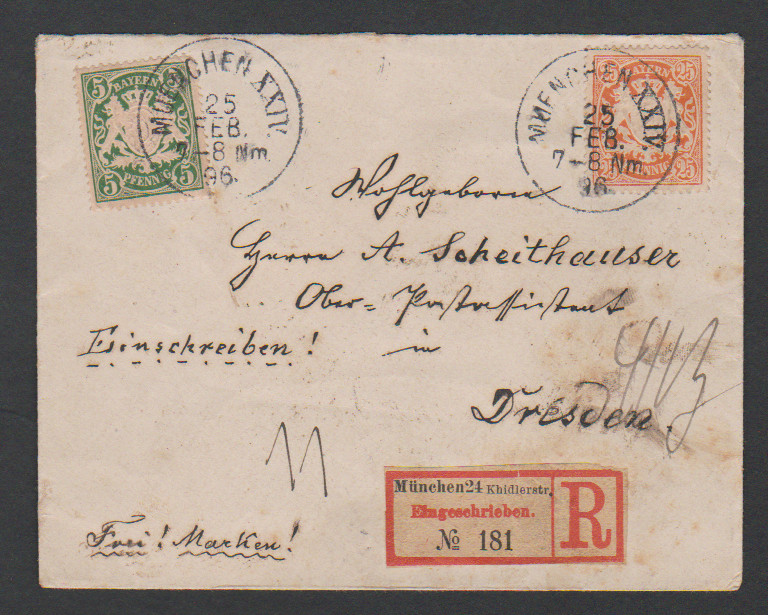 5 BAYERN 5
5 PFENNIG 5
MUENCHEN XXIV.
25
FEB.
7-8 Nm.
96.
25 BAYERN 25
25 PFENNIG 25
MUENCHEN XXIV.
25
FEB.
7-8 Nm.
96.
Wohlgeboren
Herrn A. Scheithauser
Ober-Postassistent
Einschreiben! in
Dresden.
11
München 24 Khidlerstr.
Eingeschrieben.
№ 181
R
Frei! Marken!